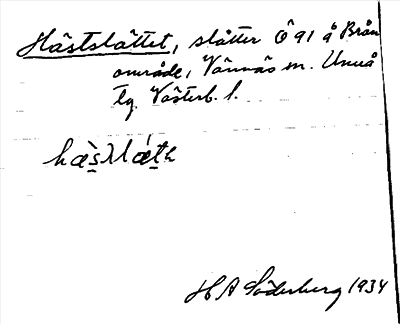 Hästslåttet, slåtter Ö 91 å Brån
område, Vännäs sn. Umeå
tg. Västerb. l.
H A Söderberg 1934